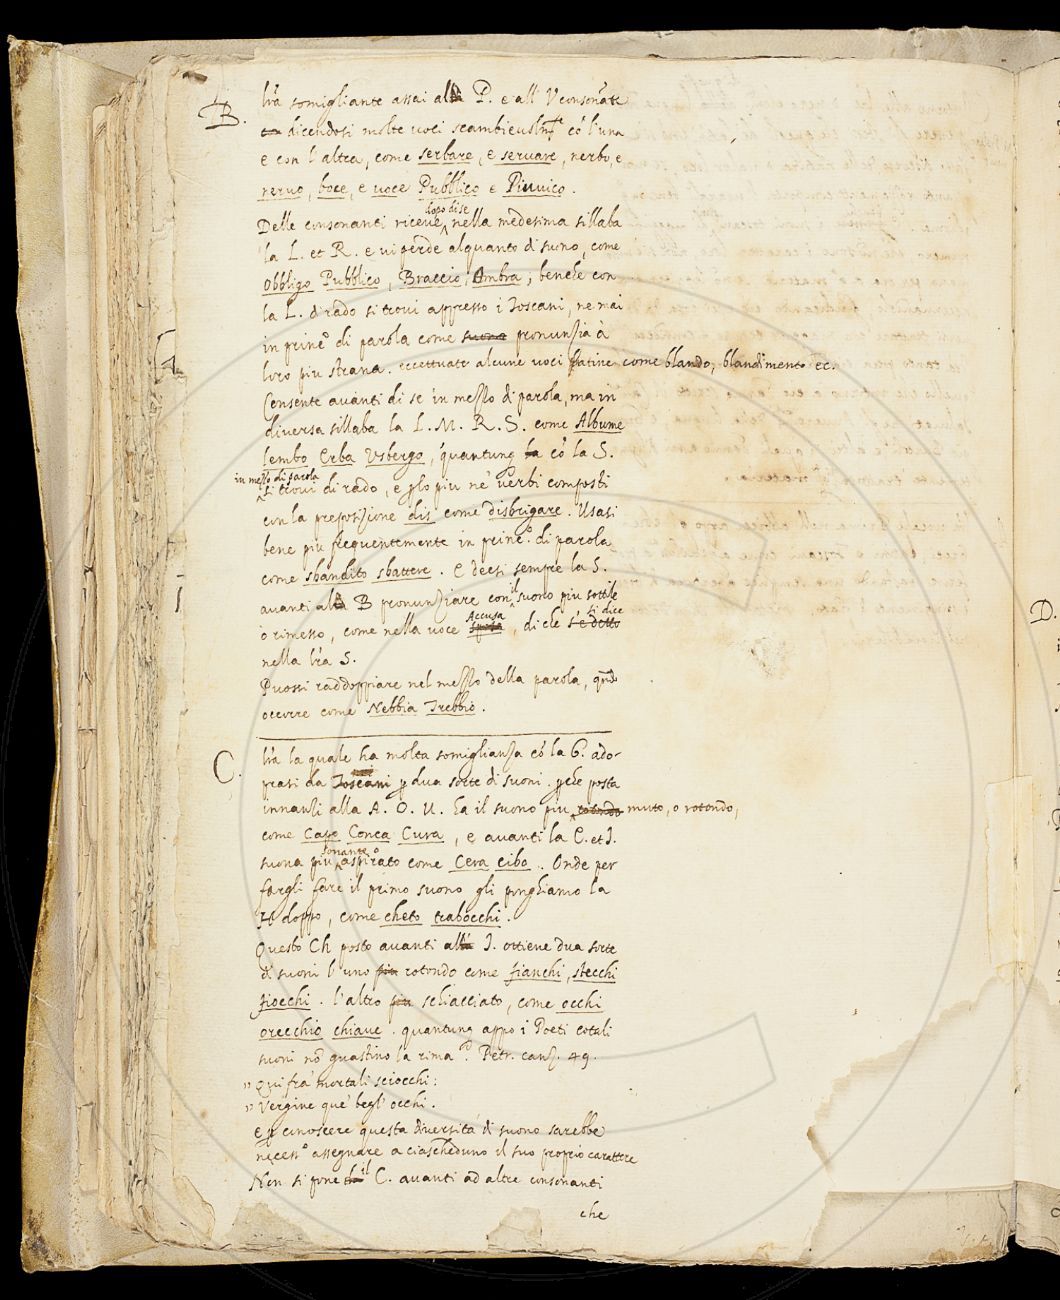 B. lrã somigliante assai alla P. e all' V consonãte
dicendosi molte voci scambievolmte cõ l'una
e con l'altra, come serbare, e servare, nerbo, e
nervo, boce, e voce Pubblico e Piuvico.
Delle consonanti riceve dopo di se nella medesima sillaba
la L. et R. e vi perde alquanto di suono, come
obbligo Pubblico, Braccio, Ombra; benche con
la L. di rado si trovi appresso i Toscani, ne mai
in princo di parola come suono pronunzia à
loro piu strana. eccettuate alcune voci latine come blando, blandimento ec.
Consente avanti di se in mezzo di parola, ma in
diversa sillaba la L. M. R. S. come Albume
lembo Erba Usbergo, quantunq la cõ la S.
in mezzo di parola
si trovi di rado, e p lo piu ne' verbi composti
con la preposizione dis come disbrigare. Usasi
bene piu frequentemente in princo. di parola
come sbandito sbattere. E deesi sempre la S.
avanti alla B pronunziare con il suono piu sottile
ò rimesso, come nella voce Accusa sposa, di che s'è detto si dice
nella lrã S.
Puossi raddoppiare nel mezzo della parola, qndo
occorre come Nebbia Trebbio.
C. lrã la quale ha molta somiglianza cõ la G. ado-
prasi da Toscani p dua sorte di suoni. pche posta
innanzi alla A. O. U. ha il suono piu rotondo muto, o rotondo,
come Capo Conca Cura, e avanti la E. et I.
suona piu sonante aspirato come Cera cibo. Onde per
fargli fare il primo suono gli pognamo la
H doppo, come cheto trabocchi.
Questo Ch posto avanti alla I. ottiene dua sorte
di suoni l'uno piu rotondo come fianchi, stecchi
fiocchi. l'altro piu schiacciato, come occhi
orecchio chiave. quantunq appo i Poeti cotali
suoni nõ guastino la rima. Petr. canz. 49.
" Qui fra' mortali sciocchi:
" Vergine que' begl' occhi.
e p conoscere questa diversità di suono sarebbe
necesso assegnare a ciascheduno il suo proprio carattere
Non si pone il C. avanti ad altre consonanti
che
D.